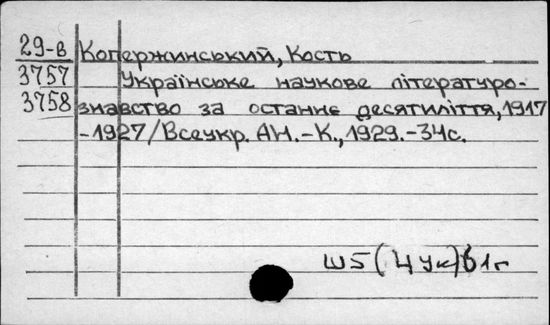 29-в Копержинський, Кость
3757 Українське наукове літературо-
3758 знавство за останнє десятиліття, 1917
-1927/Всеукр. АН.-К., 1929.-34с.
Ш5(4Ук)61г